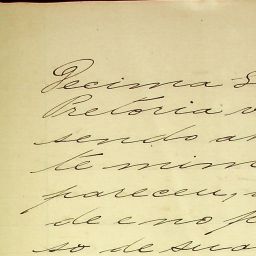 Decima S
Pretoria v
sendo an
te mim
pareceu,
de eno p
so de sua